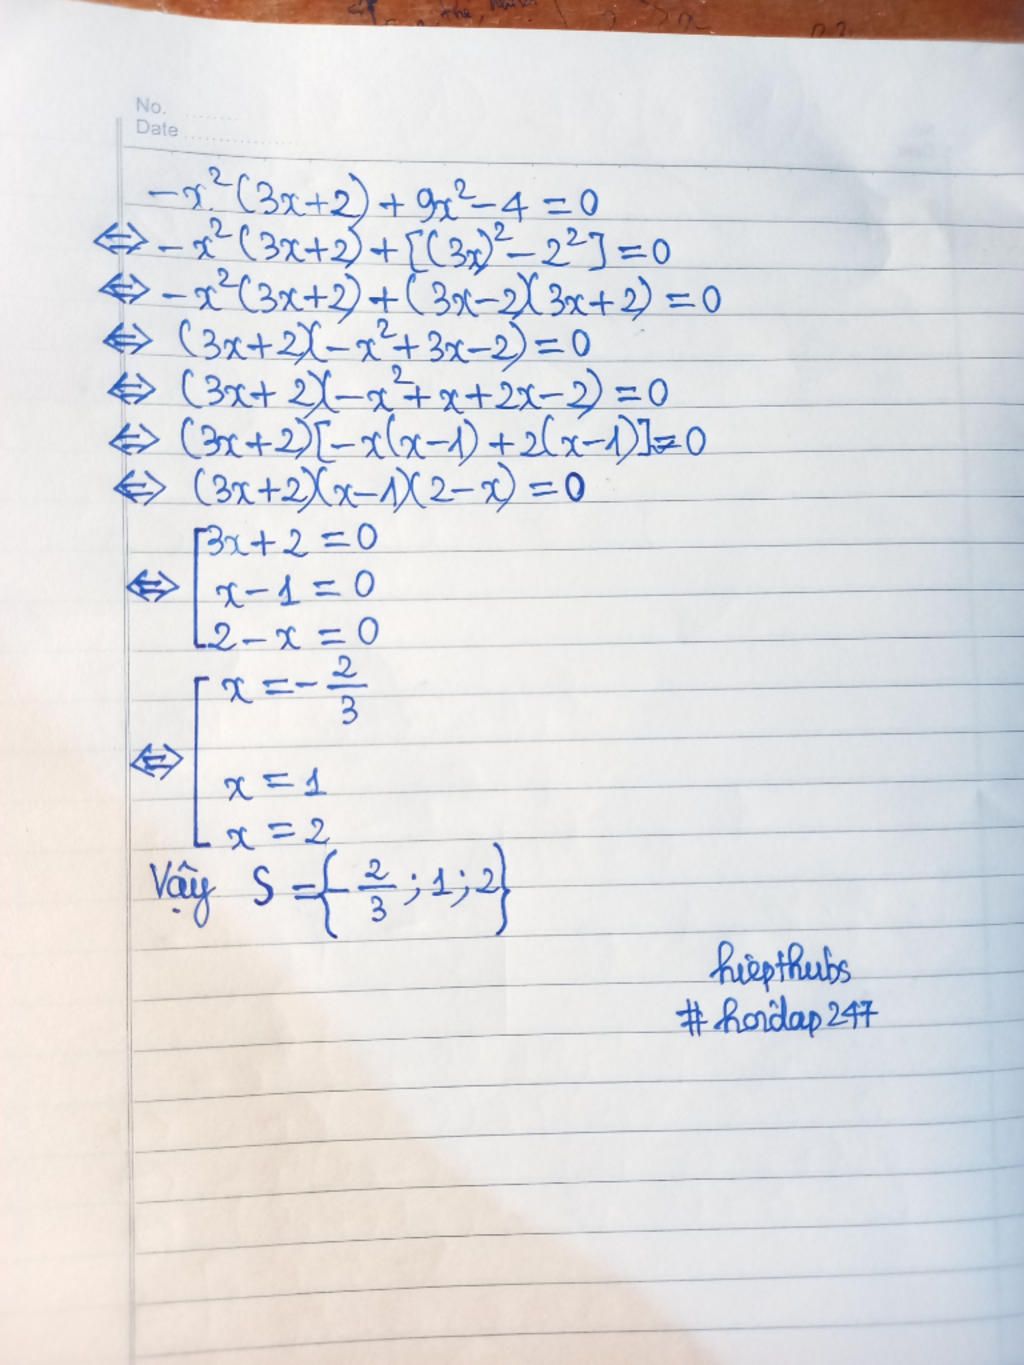 No. ........
Date ................
-x²(3x+2) + 9x² - 4 = 0
⇔ -x²(3x+2) + [(3x)² - 2²] = 0
⇔ -x²(3x+2) + (3x-2)(3x+2) = 0
⇔ (3x+2)(-x²+3x-2) = 0
⇔ (3x+2)(-x²+x+2x-2) = 0
⇔ (3x+2)[-x(x-1) + 2(x-1)] = 0
⇔ (3x+2)(x-1)(2-x) = 0
⇔ [3x+2 = 0
x-1 = 0
2-x = 0
⇔ [x = -2/3
x = 1
x = 2
Vậy S = {-2/3; 1; 2}
hiepthubs
#hoidap247